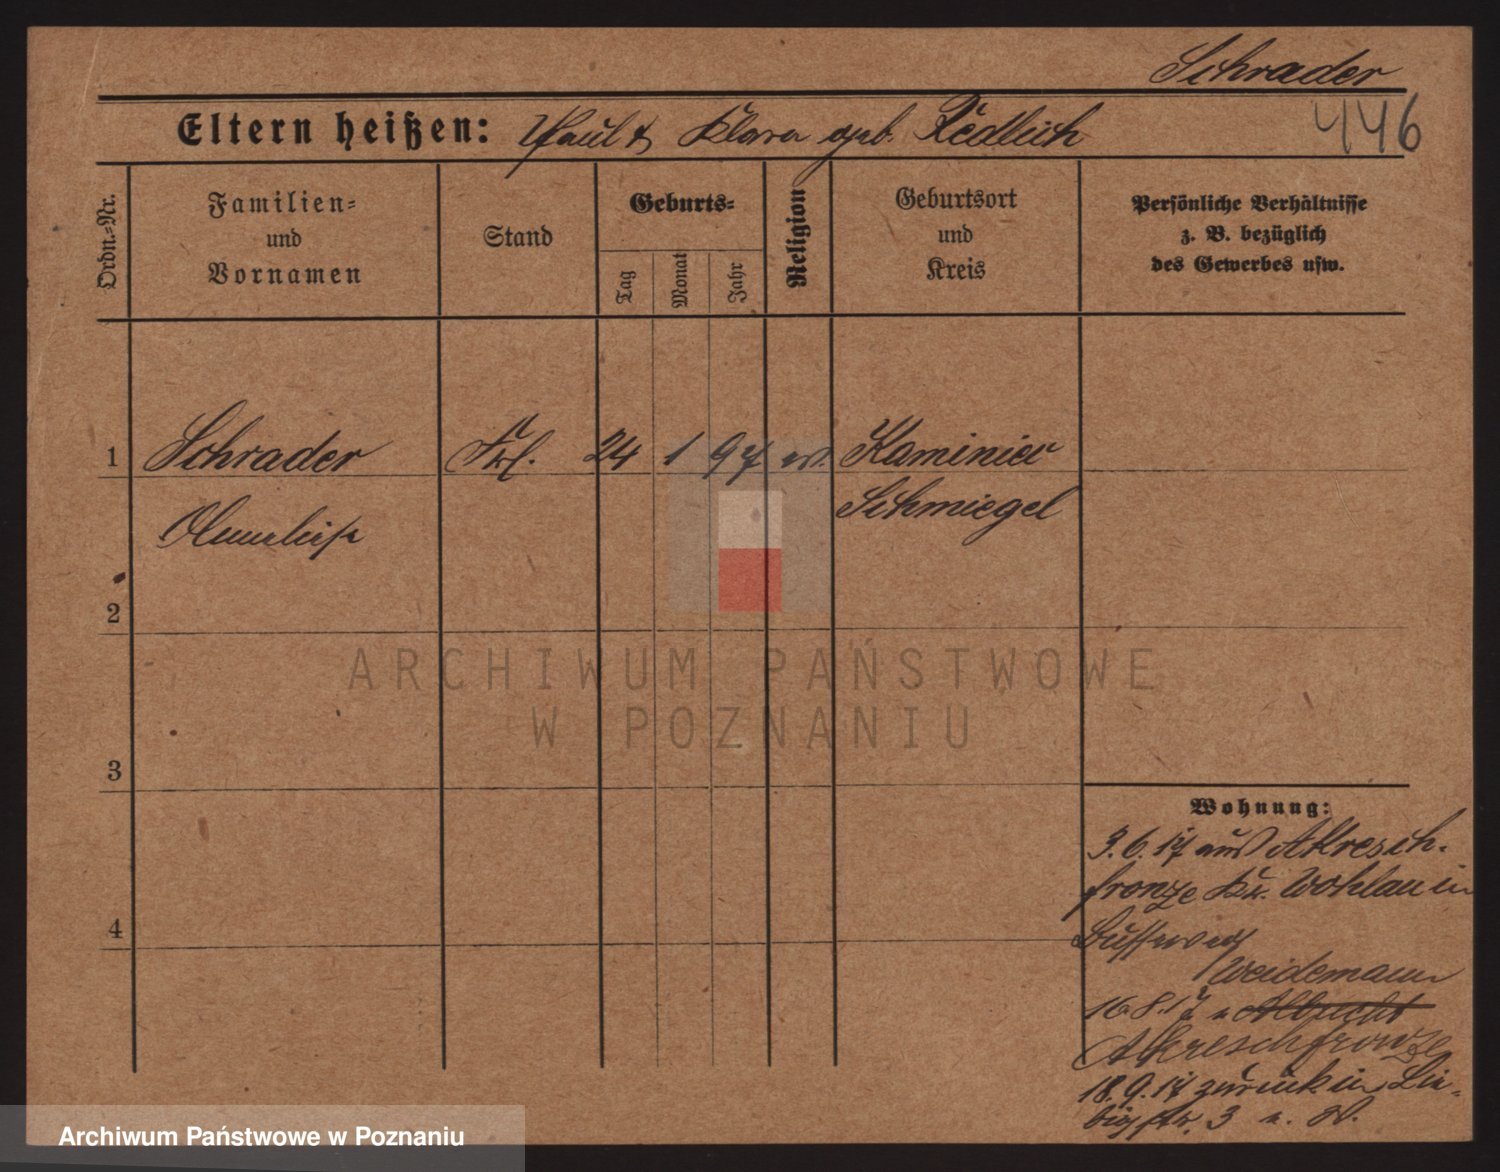 Schrader
446
Eltern heißen: Paul & Klara geb. Redlich
Ordn.-Nr.
Familien-
und
Vornamen
Stand
Geburts-
Tag
Monat
Jahr
Religion
Geburtsort
und
Kreis
Persönliche Verhältnisse
z. B. bezüglich
des Gewerbes usw.
1 Schrader Frl. 24 1 97 ev. Kaminiec
Anneliese Schmiegel
2
3
4
Wohnung:
3.6.17 aus
Kr. Wohlau in
Weidemann
16.8.17 n. Albrecht
18.9.17 zurück in Lie-
bigstr. 3 b. W.
ARCHIWUM PAŃSTWOWE
W POZNANIU
Archiwum Państwowe w Poznaniu